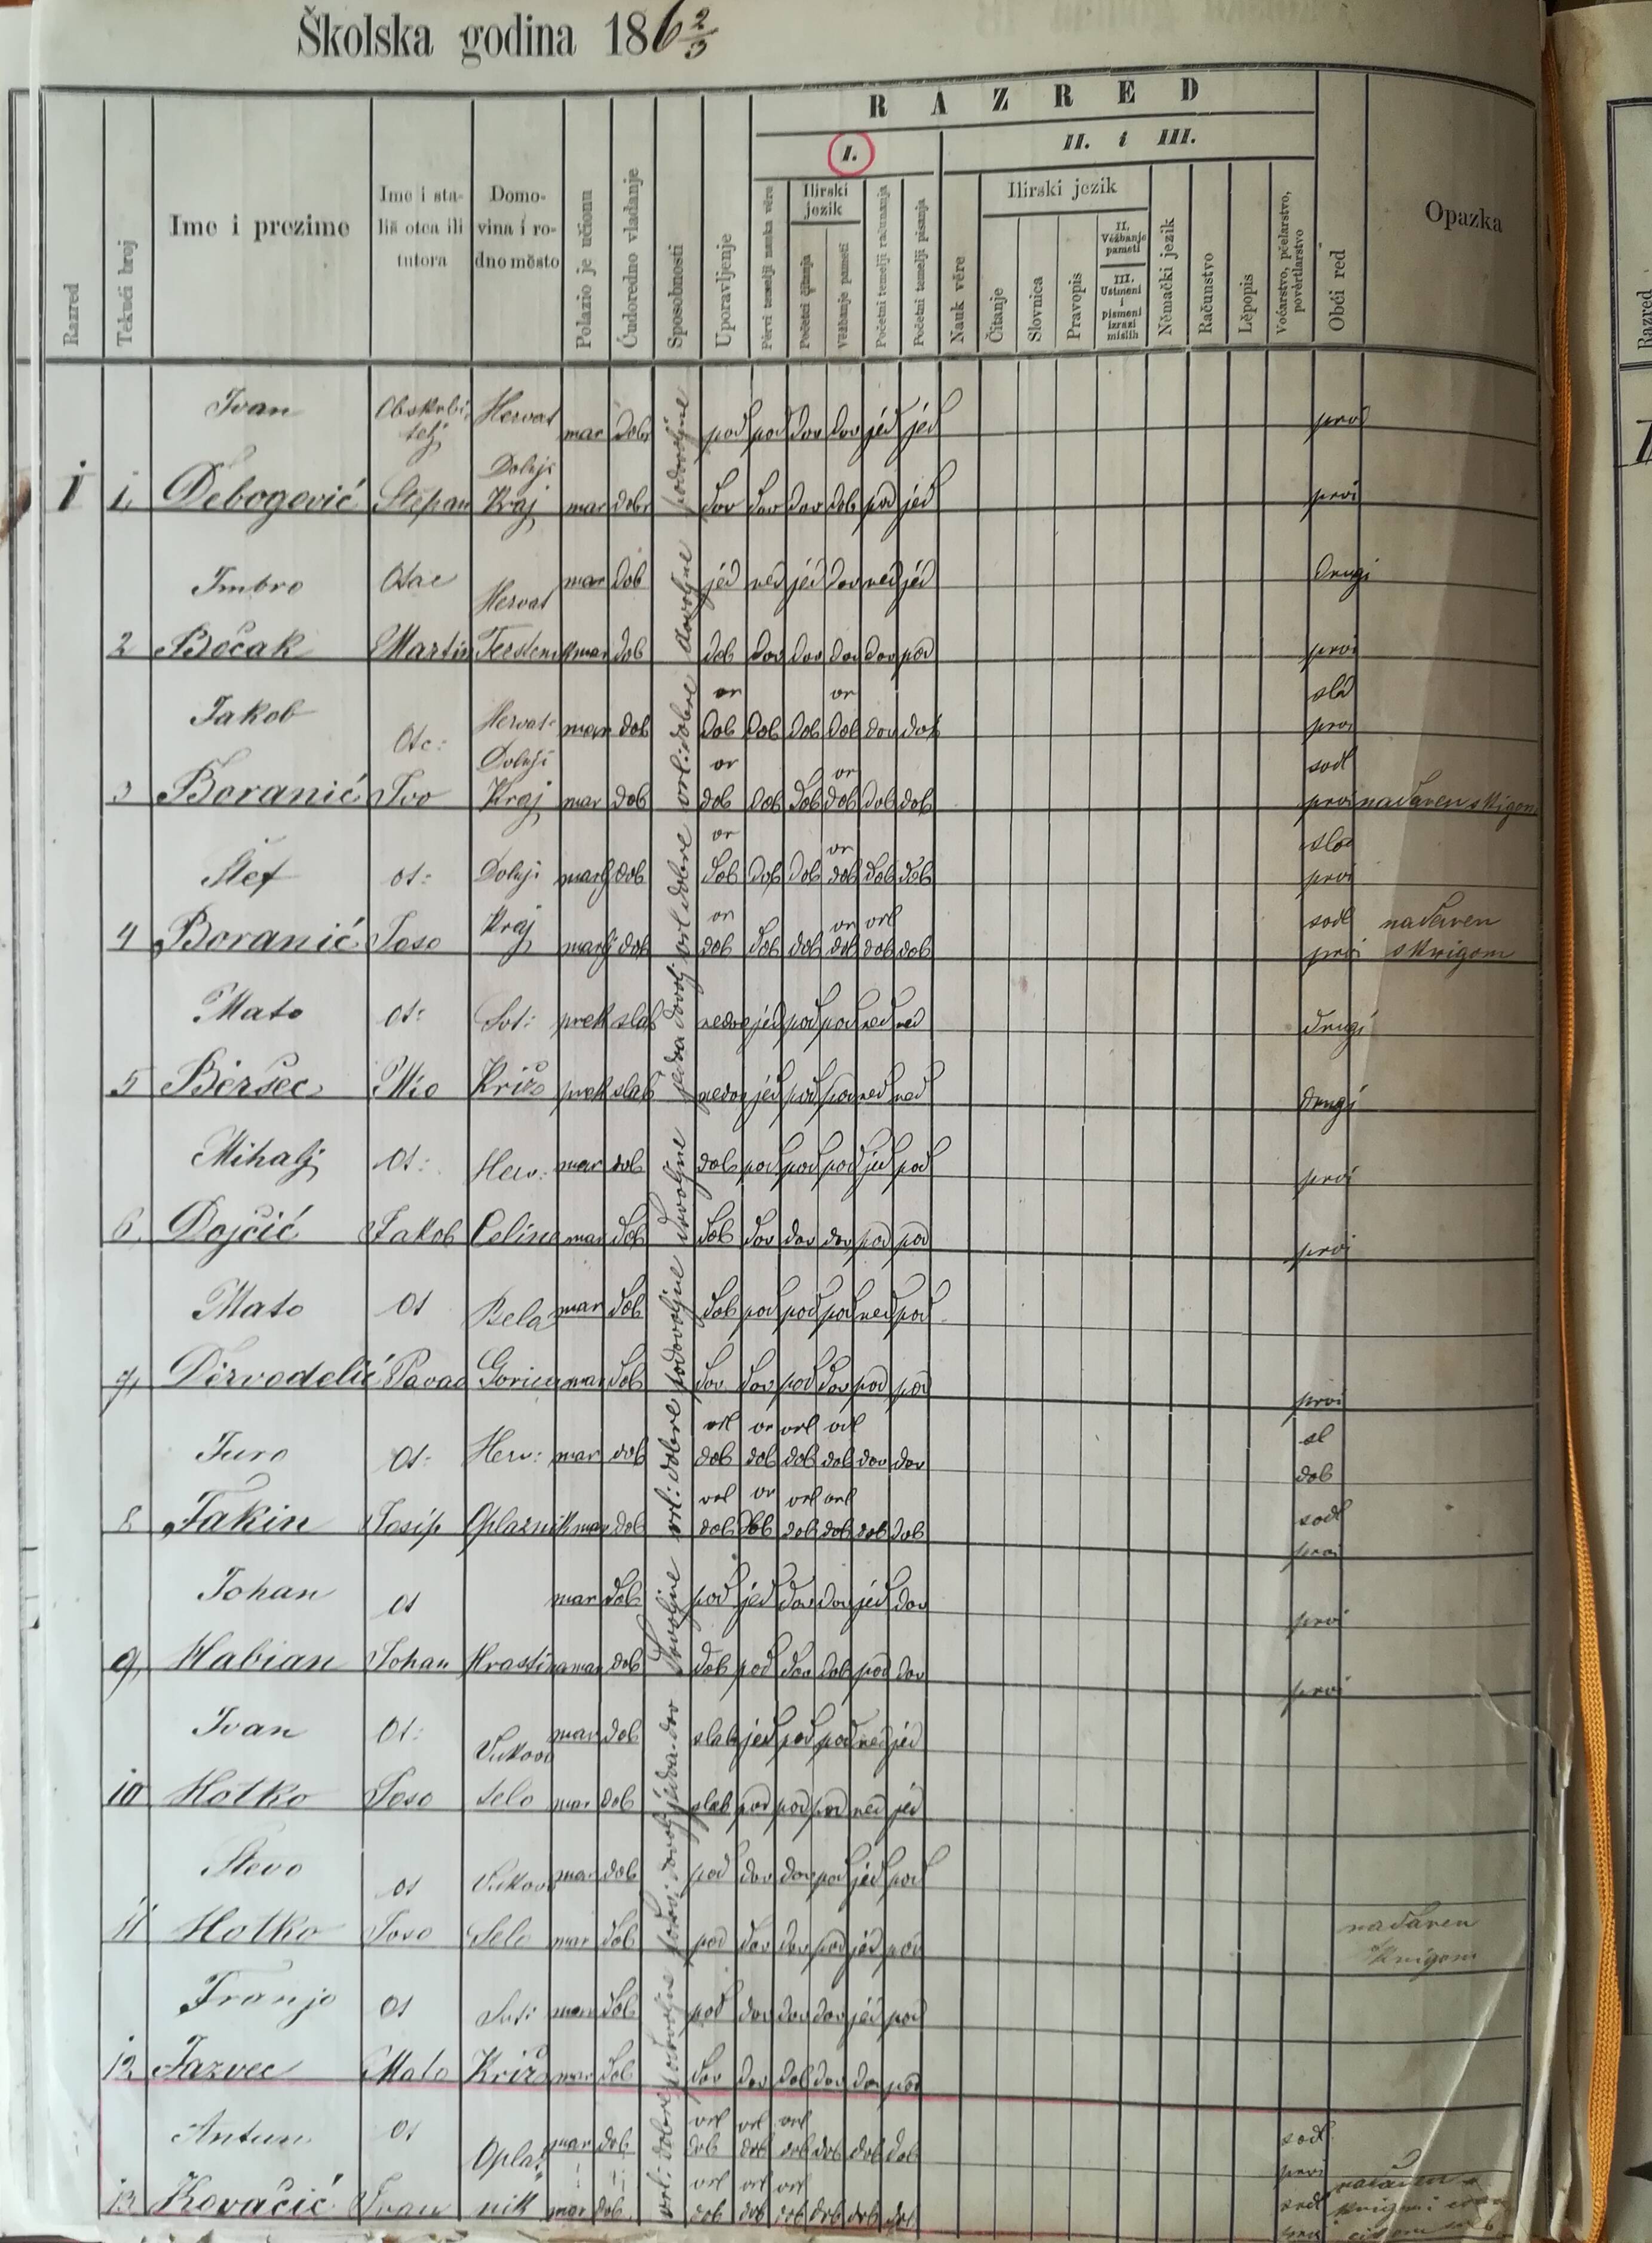 Školska godina 186 2/3
RAZRED
I.
II. i III.
Razred
Tekući broj
Ime i prezime
Ime i sta-
liš otca ili
tutora
Domo-
vina i ro-
dno město
Polazio je učionu
Ćudoredno vladanje
Sposobnosti
Uporavljenje
Pèrvi temelji nauka věre
Ilirski
jezik
Početci čitanja
Věžbanje pameti
Početni temelji računanja
Početni temelji pisanja
Nauk věre
Ilirski jezik
Čitanje
Slovnica
Pravopis
II.
Věžbanje
pameti
III.
Ustmeni
i
pismeni
izrazi
mislih
Němački jezik
Računstvo
Lěpopis
Voćarstvo, pčelarstvo,
povèrtlarstvo
Obći red
Opazka
Razred
Ivan Obskrbi- Hervat podovoljne
telj mar dob pod pod dov dov jéd jéd prvi
Dolnji
I 1, Debogović Stepan Kraj mar dob dov dov dov dob pod jéd prvi
Imbro Otac Hervat mar dob dovoljne jéd ned jéd dov ned jéd drugi
2 Bočak Martin mar dob dob dov dov dov dov pod prvi
Jakob Otc: Hervat mar dob vrl: dobre vr dob dob dob vr dob dov dob prvi
Dolnji
3 Boranić Ivo Kraj mar dob vr dob dob dob vr dob dob dob sodl prvi nadaren sknigom
Štef ot: Dolnji marlj dob vrl dobre vr dob dob dob vr dob dob dob prvi
4 Boranić Joso Kraj marlj dob vr dob dob dob vr dob vrl dob dob sodl prvi nadaren
sknigom
Mato ot: Sveti prek slab jedva dovolj jéd pod pod ned ned drugi
5 Beršec Mio Križ prek slab jéd pod pod ned ned drugi
Mihalj Ot: Herv: mar dob dovoljne dob pod pod pod jed pod prvi
6, Dojčić Jakob Celine mar dob dob dov dov dov pod pod prvi
Mato Ot Bela mar dob podovoljne dob pod pod pod ned pod
7, Dervodelić Pavao Gorica mar dob dov dov pod dov pod pod prvi
Juro Ot: Herv: mar dob vrl: dobre vrl dob vr dob vrl dob vrl dob dov dov
8 Fakin Josip Oplaznik mar dob vrl dob vr dob vrl dob vrl dob dob dob sodl prvi
Johan Ot mar dob dovoljne pod jéd dov dov jéd dov prvi
9, Habian Johan Hrastina mar dob dob pod dov dob pod dov prvi
Ivan Ot: Vukovo mar dob slab jéd pod pod ned jéd
10 Hotko Joso selo mar dob slab pod pod pod ned jéd
Stevo Ot Vukovo mar dob pod dov dov pod jéd pod
11 Hotko Joso Selo mar dob pod dov dov pod jéd pod nadaren
sknigom
Franjo Ot Sveti mar dob podovoljne pod dov dov dov jéd pod
12 Jazvec Mato Križ mar dob dov dov dob dov dov pod
Antun Ot Oplaz- mar dob vrl: dobre vrl dob vrl dob vrl dob dob dob dob sodl prvi
13 Kovačić Ivan nik mar dob vrl dob vrl dob vrl dob dob dob dob sodl prvi